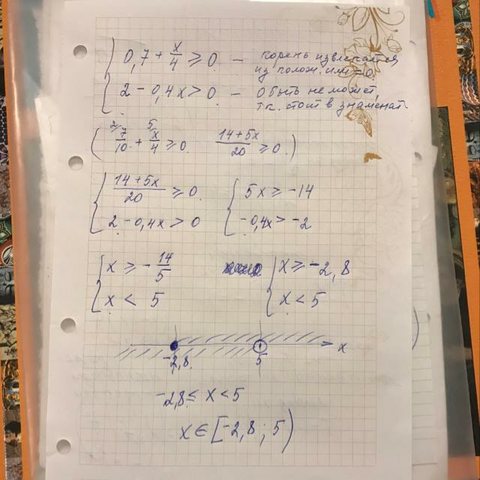 { 0,7 + x/4 ≥ 0 — корень извлекается
из полож. или = 0.
2 - 0,4x > 0 — 0 быть не может,
т.к. стоит в знаменат.
( 7/10 + x/4 ≥ 0 (14+5x)/20 ≥ 0. )
{ (14+5x)/20 ≥ 0. { 5x ≥ -14
2 - 0,4x > 0 -0,4x > -2
{ x ≥ -14/5 { x ≥ -2,8
x < 5 x < 5
-2,8 5 x
-2,8 ≤ x < 5
x ∈ [-2,8; 5)